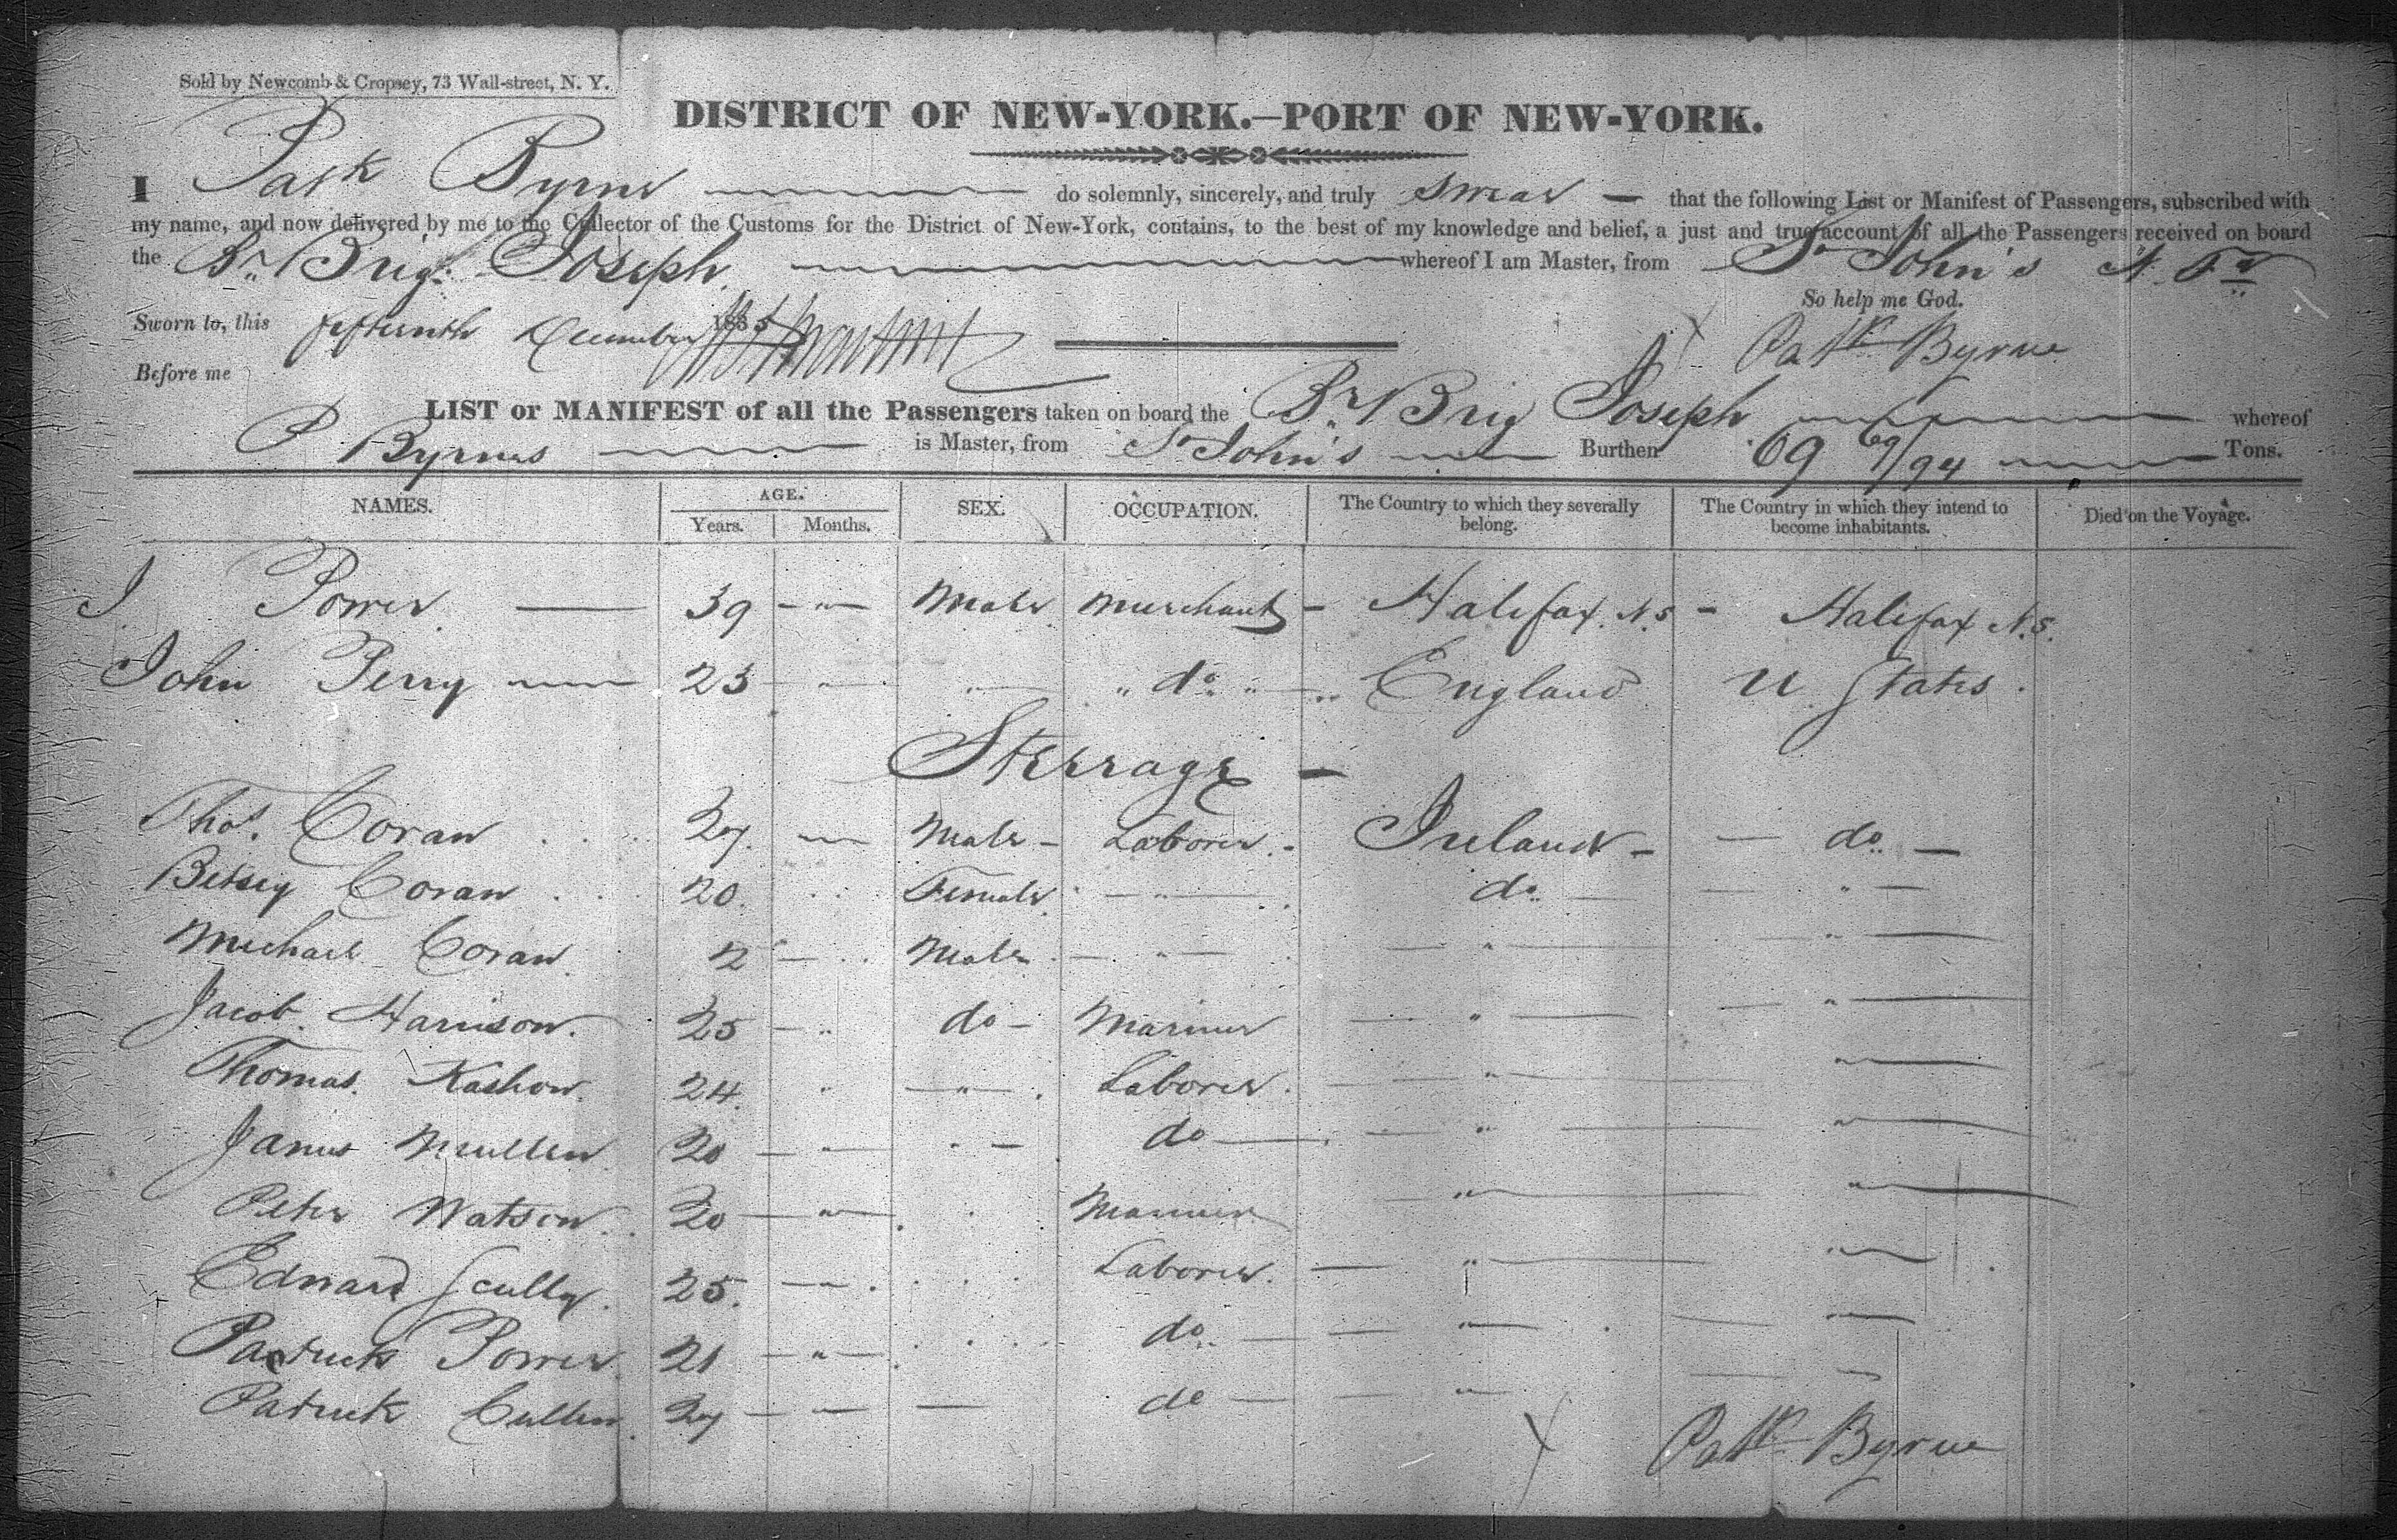 Sold by Newcomb & Cropsey, 73 Wall-street, N. Y.
DISTRICT OF NEW-YORK.—PORT OF NEW-YORK.
I Patk Byrne do solemnly, sincerely, and truly swear — that the following List or Manifest of Passengers, subscribed with
my name, and now delivered by me to the Collector of the Customs for the District of New-York, contains, to the best of my knowledge and belief, a just and true account of all the Passengers received on board
the Br. Brig. Joseph. whereof I am Master, from St John's N. Fd
So help me God.
Sworn to, this fifteenth December 1835
Patk Byrne
Before me
LIST or MANIFEST of all the Passengers taken on board the Br Brig Joseph whereof
P Byrnes is Master, from St John's Burthen 69 69/94 Tons.
NAMES. AGE. Years. Months. SEX. OCCUPATION. The Country to which they severally belong. The Country in which they intend to become inhabitants. Died on the Voyage.
J. Power — 39 - " - Male Merchant - Halifax. N.S - Halifax N.S.
John Perry 23 " " " do " England U. States.
Steerage —
Thos. Coran 27 — Male - Laborer. - Ireland - — do. —
Betsey Coran 20 Female " do — " —
Michael Coran 2 — Male — " — — " — — " —
Jacob. Harrison. 25 - " do - Mariner — " — — " —
Thomas. Kashow. 24. " — " — Laborer. — " — " —
James Mullen 20 — " — - — do — — " — " —
Peter Watson 20 — " — Mariner — " — " —
Edward Scully. 25. — " — Laborer. — " — " —
Patrick Power 21 — " — do. — — " — — " —
Patrick Cullen 27 — " — — do — — " — — —
Patk Byrne